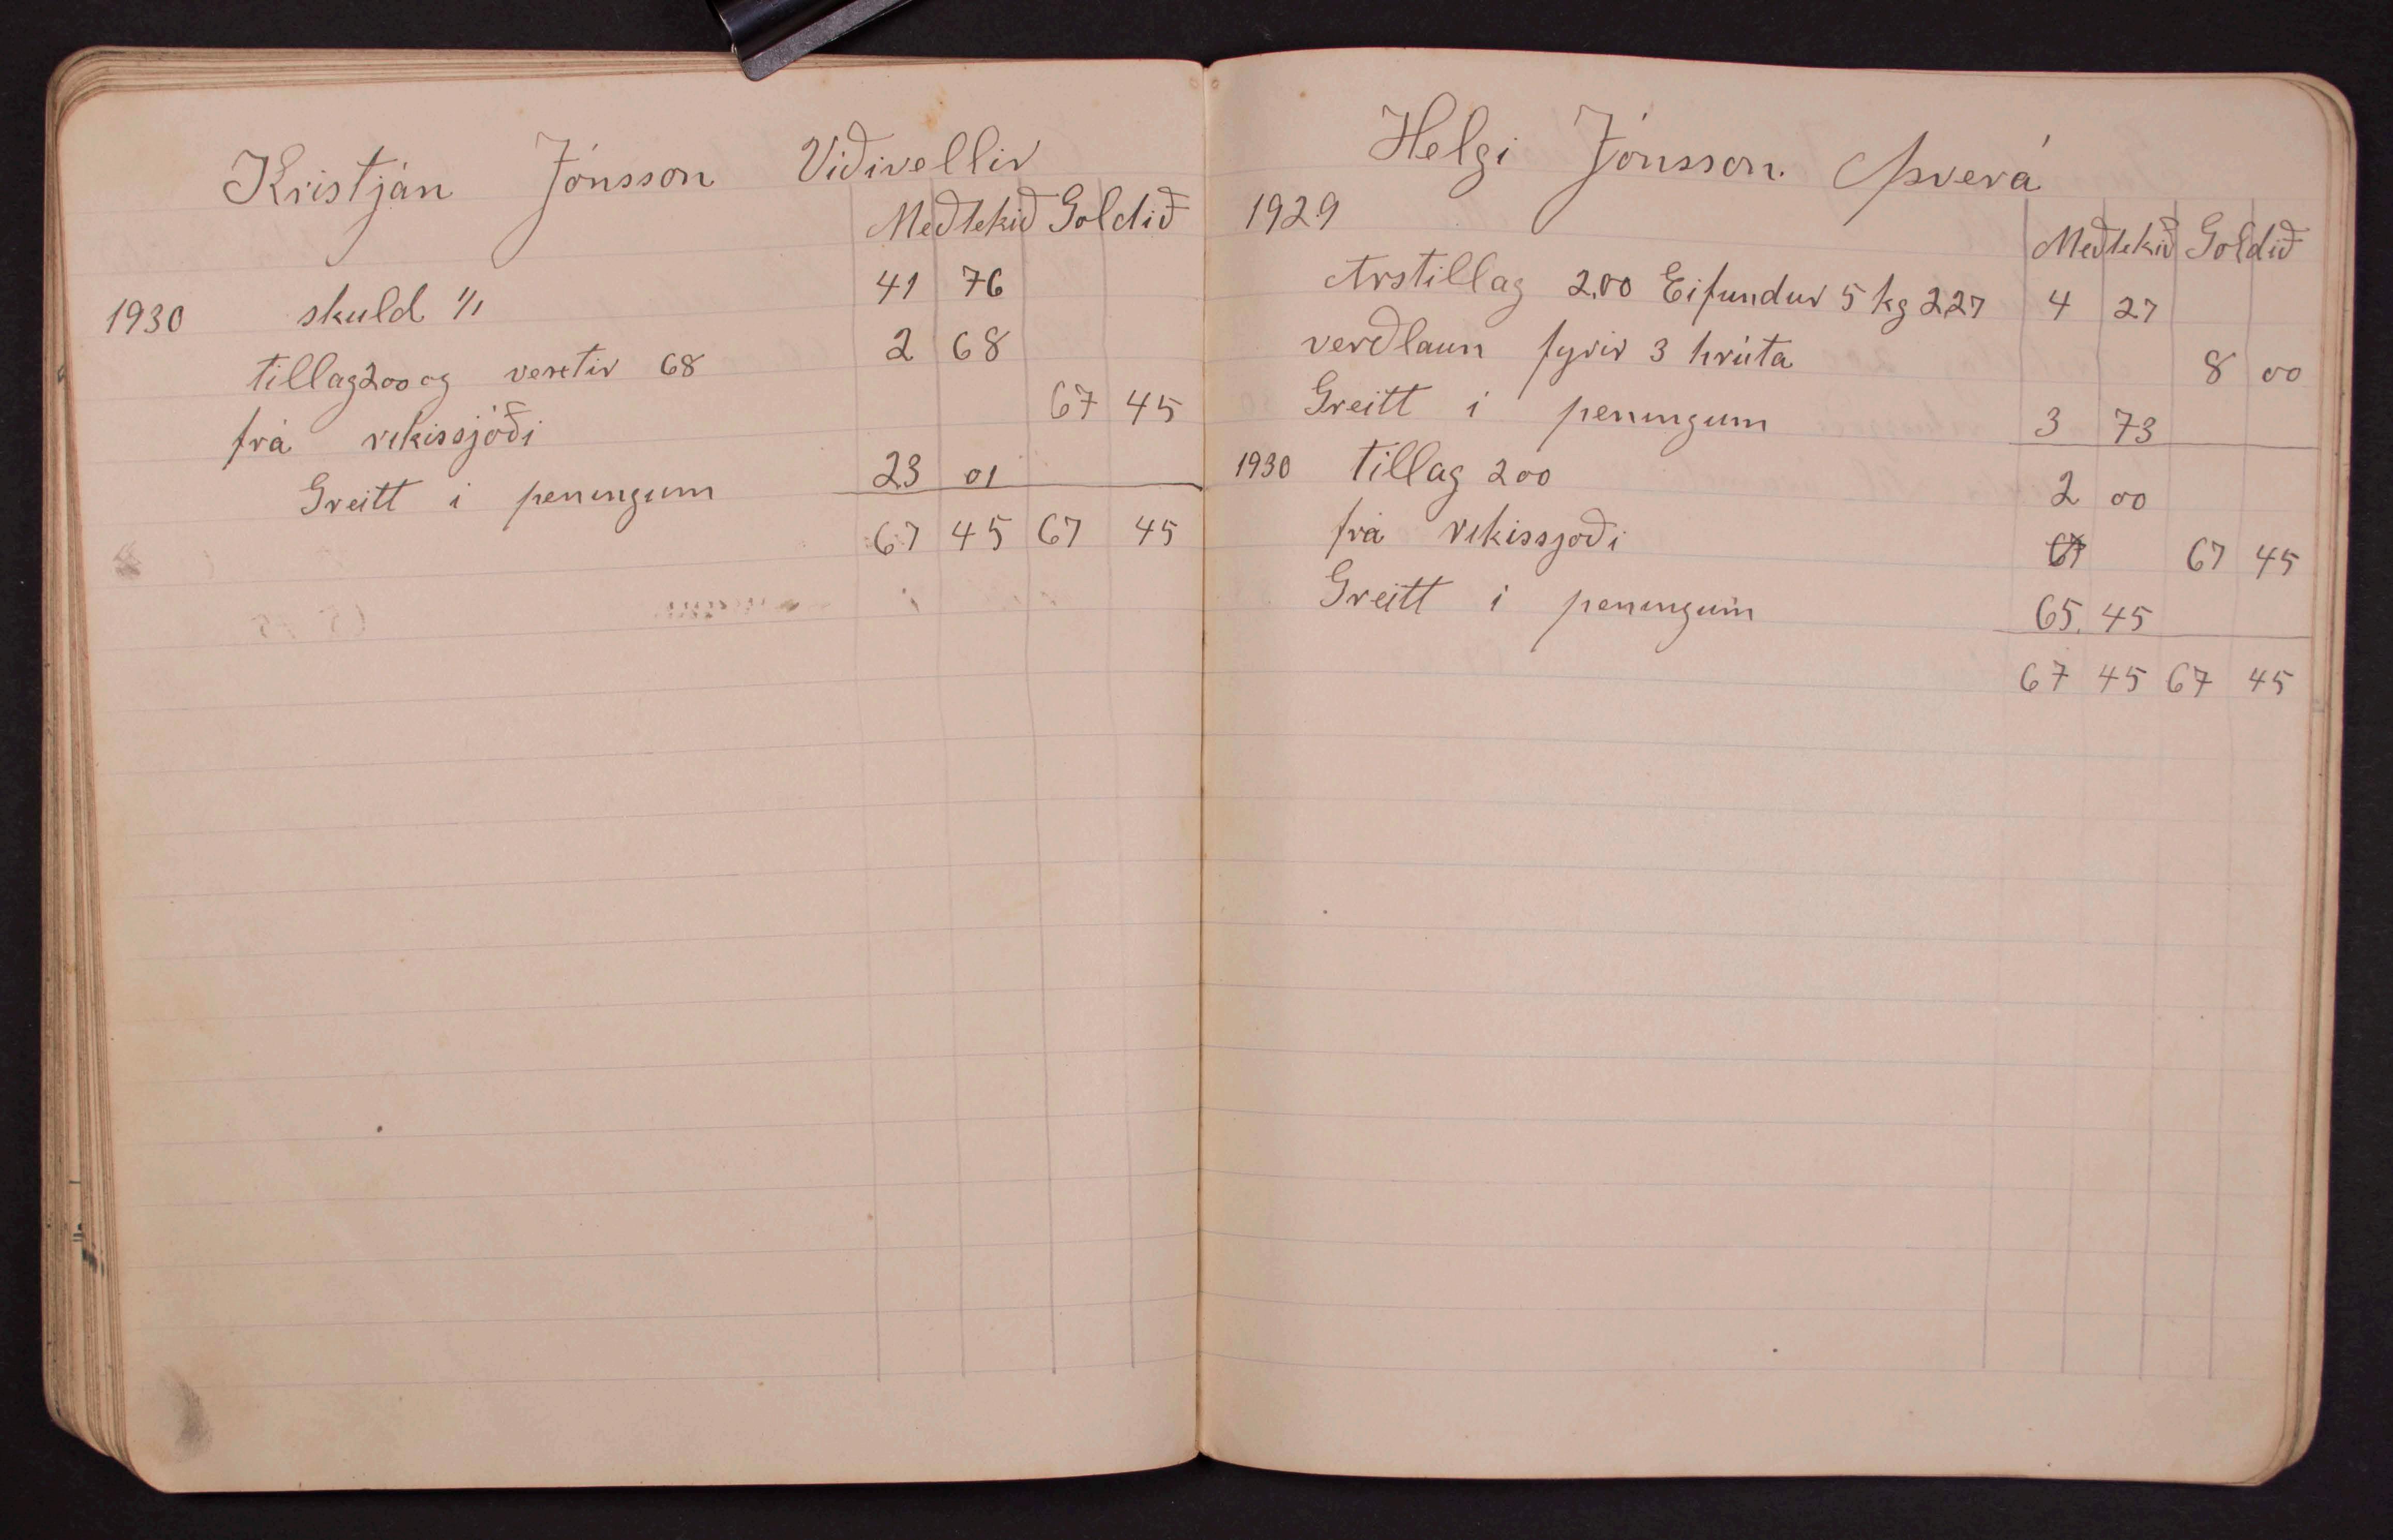 Kristján Jónsson Viðivellir
Meðtekið Goldið
1930 skuld 1/1 41 76
tillag 200 og vextir 68 2 68
frá rikissjóði 67 45
Greitt i peningum 23 01
67 45 67 45
Helgi Jónsson. Þverá
1929 Meðtekið Goldið
Arstillag 2.00 Eifundur 5 kg 227 4 27
verðlaun fyrir 3 hrúta 8 00
Greitt i peningum 3 73
1930 tillag 200 2 00
frá rikissjoði 67 67 45
Greitt i peningum 65.45
67 45 67 45